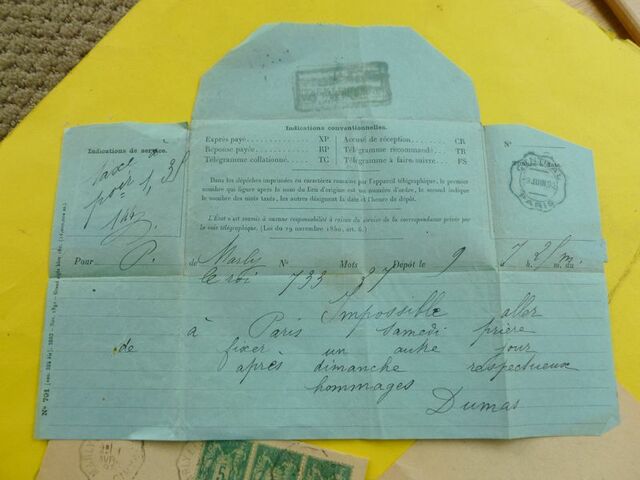 Indications conventionnelles.
Indications de service.
Exprès payé XP
Réponse payée RP
Télégramme collationné TC
Accusé de réception CR
Télégramme recommandé TR
Télégramme à faire suivre FS
N°
PARIS
taxe
pour
Dans les dépêches imprimées en caractères romains par l'appareil télégraphique, le premier
nombre qui figure après le nom du lieu d'origine est un numéro d'ordre, le second indique
le nombre des mots taxés, les autres désignent la date et l'heure de dépôt.
L'État n'est soumis à aucune responsabilité à raison du service de la correspondance privée par
la voie télégraphique. (Loi du 29 novembre 1850, art. 6.)
Pour P. de Marly N° Mots Dépôt le 9 h. m. du
le roi 733
Impossible aller
à Paris samedi prière
de fixer un autre jour
après dimanche respectueux
hommages
Dumas
N° 701